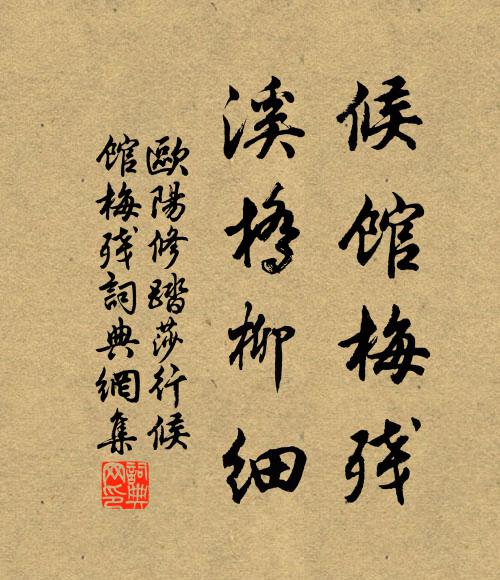 候館梅残
溪橋柳細
歐陽修踏莎行候
館梅残詞典網集
詞典
网印